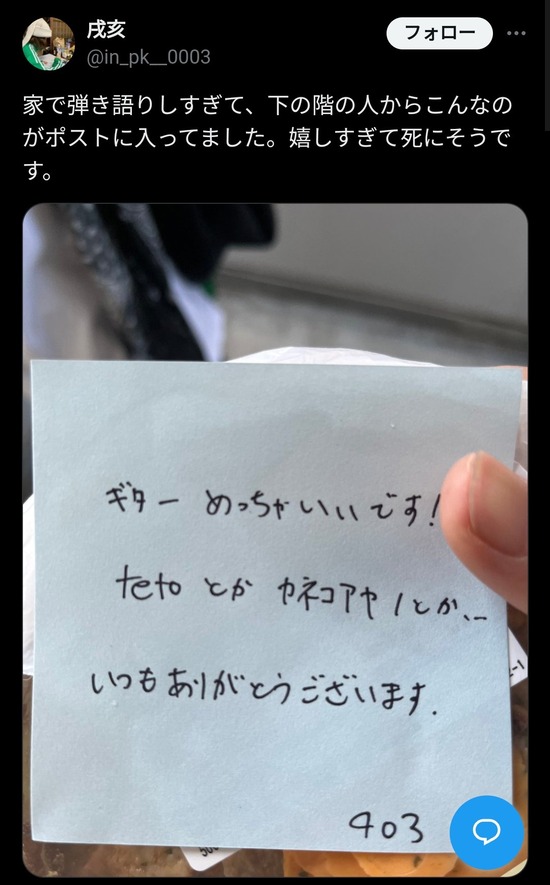 戌亥
@in_pk__0003
フォロー
家で弾き語りしすぎて、下の階の人からこんなの
がポストに入ってました。嬉しすぎて死にそうで
す。
ギター めっちゃいいです!
teto とか カネコアヤノとか、…
いつもありがとうございます.
403